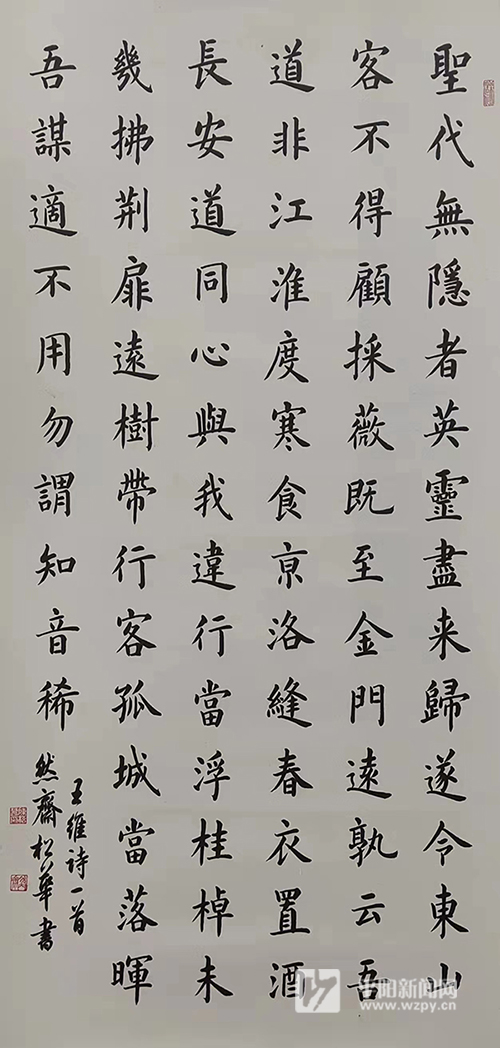 聖代無隱者英靈盡来歸遂令東山
客不得顧採薇既至金門遠孰云吾
道非江淮度寒食亰洛縫春衣置酒
長安道同心與我違行當浮桂棹未
幾拂荊扉遠樹帶行客孤城當落暉
吾謀適不用勿謂知音稀
王維詩一首
然齋松華書
平阳新闻网
www.wzpy.cn